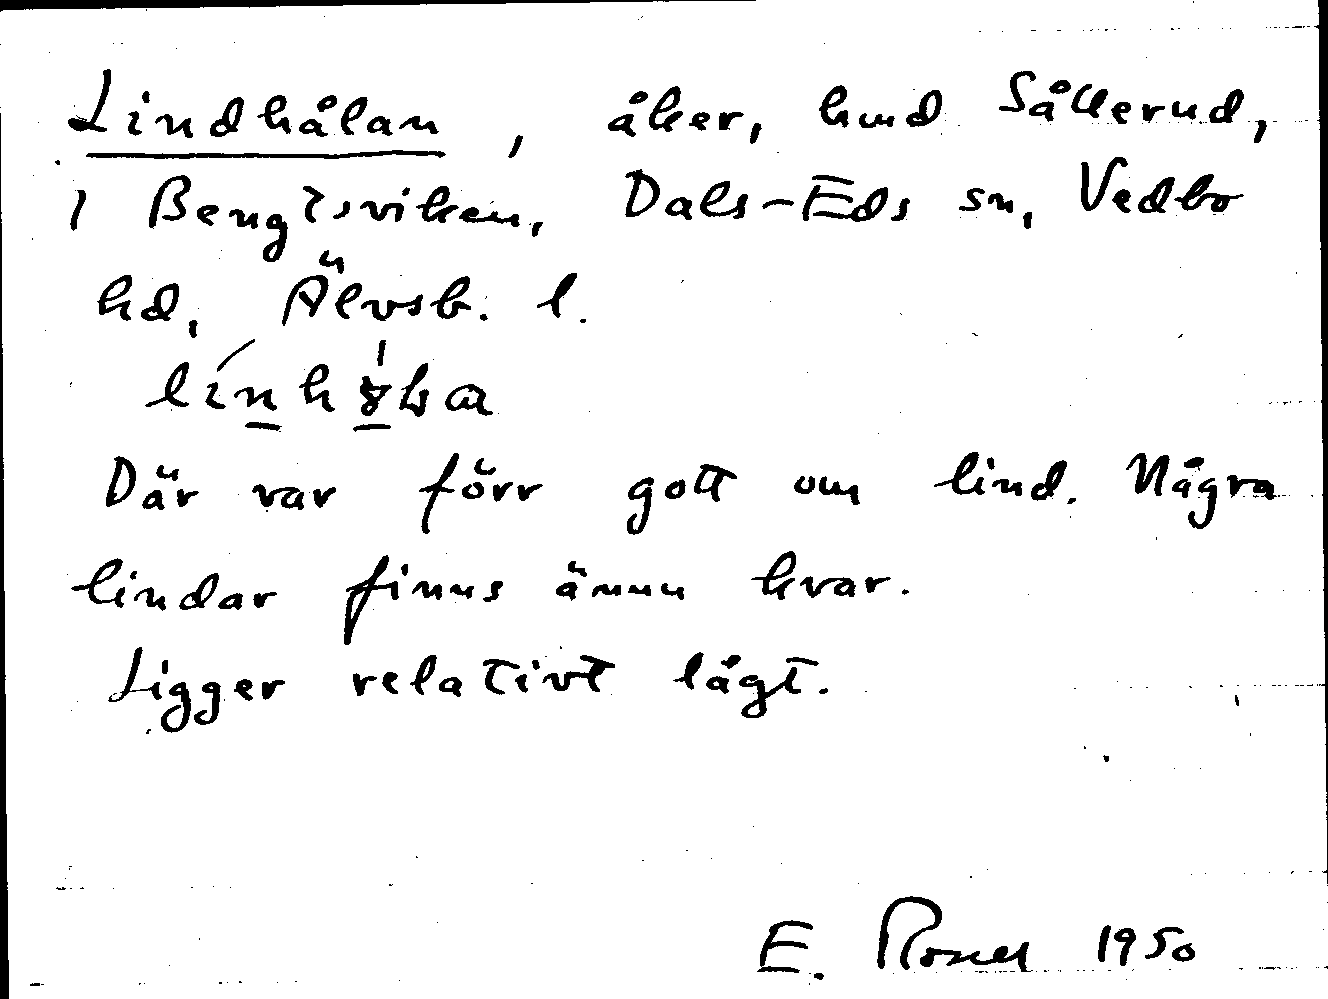 Lindhålan, åker, hmd Såkerud,
1 Bengtsviken, Dals-Eds sn, Vedbo
hd, Älvsb. l.
Där var förr gott om lind. Några
lindar finns ännu kvar.
Ligger relativt lågt.
E. 1950